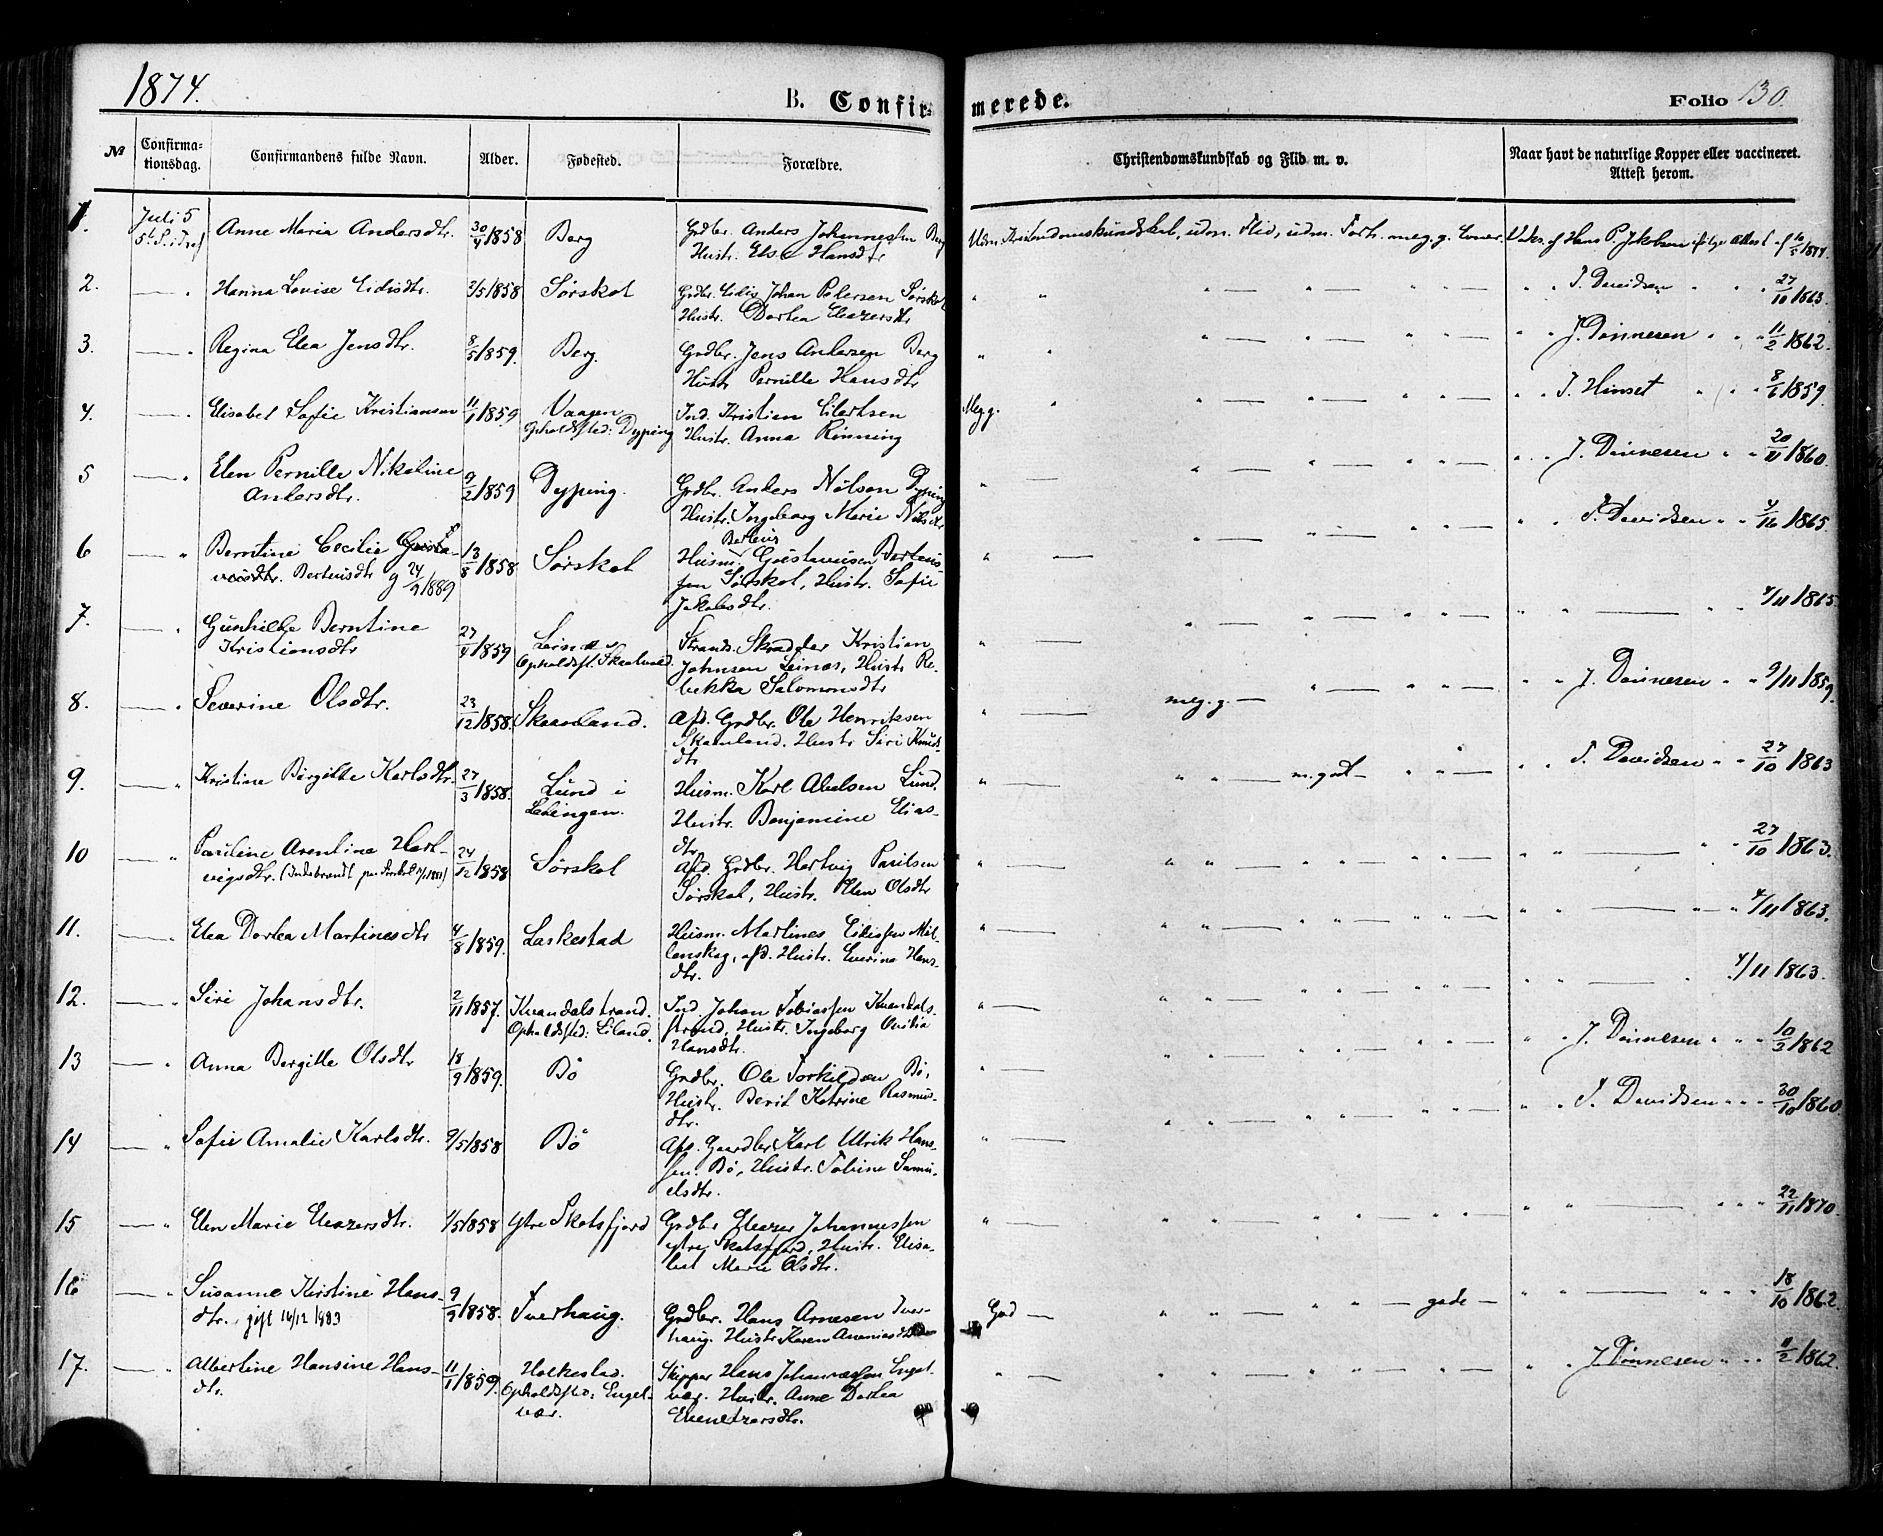 1874.
B. Confir- merede.
Folio 130.
№ Confirma-tionsdag. Confirmandens fulde Navn. Alder. Fødested. Forældre. Christendomskundskab og Flid m. v. Naar havt de naturlige Kopper eller vaccineret. Attest herom.
1. Juli 5 Anne Maria Andersdtr. 30/4 1858 Berg Grdbr. Anders Johannessen Berg
Hustr. Else Hansdtr
Udm. Kristendomskundskab, udm. Flid, udm. Forh. meg. g. Evner. Vaks. af Hans P. Jakobsen ifølge Attest af 16/5 1874
2. — " Hanna Lovise Eidisdtr. 2/5 1858 Sørskot Grdbr. Eidis Johan Petersen Sørskot
Hustr. Dortea Eleazersdtr
" " J. Davidsen " " 27/10 1863.
3. — " Regina Elea Jensdtr. 8/5 1859. Berg. Grdbr. Jens Andersen Berg
Hustr Pernille Hansdtr
" " J. Dønnesen " " 11/2 1862.
4. — " Elisabet Sofie Kristiansen 11/1 1859 Vaagen
Opholdssted: Dyping
Ind. Kristian Eilertsen
Hustr. Anna Rønning
Meg g. " " J. Hunset " " 8/6 1859.
5 — " Elen Pernille Nikoline
Andersdtr. 9/2 1859 Dyping. Grdbr. Anders Nilsen Dyping
Hustr. Ingeborg Marie Nilsdtr
" " J. Dønnesen " " 20/11 1860.
6 — " Berntine Cecilie Gusta-
vusdtr. Berteusdtr g 24/9 1889
13/8 1858 Sørskot
Berteus
Husm. Gustavusen Berteus-
sen Sørskot, Hustr. Sofie
Jakobsdtr.
" " J. Davidsen " " 1865.
7. — " Gunhilde Berntine
Kristiansdtr 27/4 1859 Leines
Opholdsst. Skaaland
Strands. Skrædder Kristian
Johnsen Leines, Hustr Re-
bekka Salomonsdtr
" " — " " 4/11 1865.
8. — " Severine Olsdtr. 23/12 1858. Skaanland. Afd. Grdbr. Ole Henriksen
Skaanland. Hustr Siri Knuds-
dtr
meg. g. — " " J. Dønnesen " " 9/11 1859.
9. — " Kristine Birgitte Karlsdtr. 27/3 1858. Lund i
Lødingen.
Husm. Karl Abelsen Lund.
Hustr. Benjamine Elias-
dtr.
m. god — " " J. Davidsen " " 27/10 1863
10 — " Pauline Arentine Hart-
vigsdtr. 24/12 1858 Sørskot Afd. Grdbr. Hartvig Paulsen
Sørskot, Hustr. Elen Olsdtr
" " — " " 27/10 1863.
11. — " Elea Dortea Martinesdtr 4/8 1859. Laskestad Husm. Martines Eidissen Møl-
lenskog, afd. Hustr. Everine Hans-
dtr.
" " — " " 4/11 1863.
12. — " Siri Johansdtr. 2/11 1857. Kvandalstrand.
Opholdssted: Eiland.
Ind. Johan Tobiassen Kvandals-
strand, Hustr. Ingeborg Onilia
Hansdtr.
" " — " 4/11 1863.
13 — " Anna Bergitte Olsdtr 18/9 1859. Bö Grdbr. Ole Torkildsen Bö,
Hustr. Berit Katrine Rasmus-
dtr.
" " J. Dønnesen " " 10/3 1862
14 — " Sofie Amalie Karlsdtr. 9/5 1858 Bö Afd. Gaardbr Karl Ulrik Hans-
sen. Bö, Hustr. Tobine Samu-
elsdtr.
" " J. Davidsen " " 30/10 1860.
15 — " Elen Marie Eleazersdtr. 1/5 1858 Ytre Skotsfjord Grdbr Eleazer Johannessen
ytre Skotsfjord, Hustr. Elisa-
bet Marie Olsdtr.
" " — " " 22/11 1870.
16 — " Susanne Kirstine Hans-
dtr. gift 16/12 1883
9/9 1858. Tverhaug. Grdbr. Hans Arnesen Tver-
haug. Hustr Karen Ananiasdtr
God — " " — gode — " " — " " 18/10 1862.
17. — " Albertine Hansine Hans-
dtr. 11/1 1859. Holkestad.
Opholdssted: Engel-
vær.
Skipper Hans Johannessen Engel-
vær. Hustr. Anne Dortea
Ebenetzersdtr.
" " J. Dønnesen " " 11/2 1862.